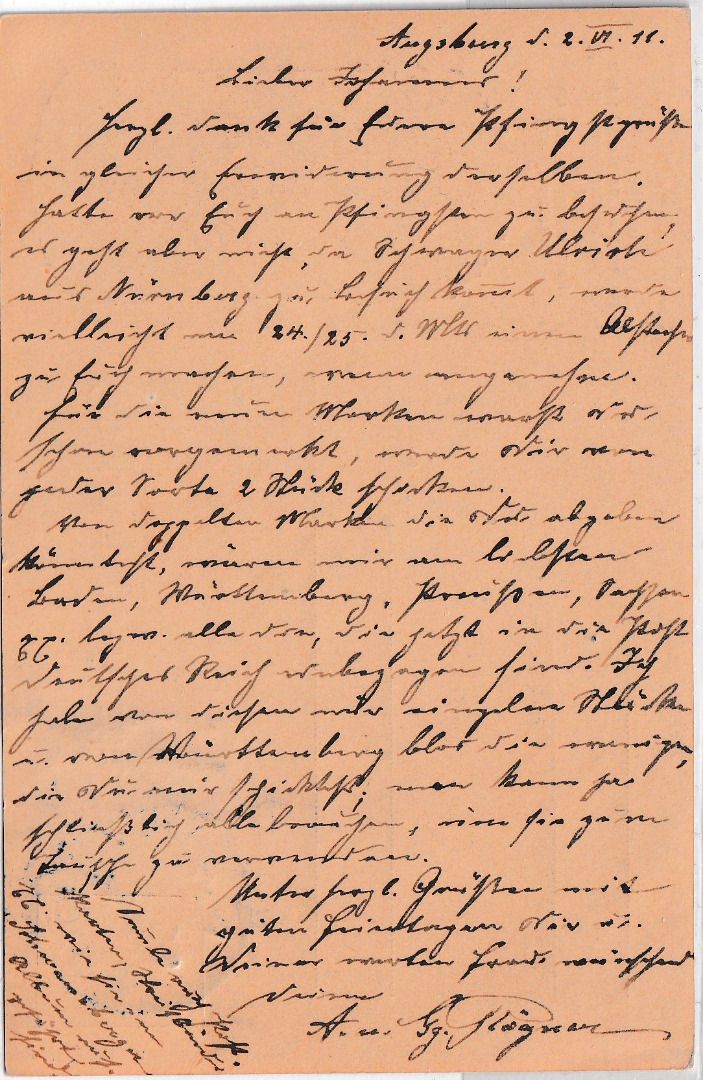 Augsburg d. 2. VI. 11.
Lieber Johannes!
Herzl. Dank für Euere Pfingstgrüße
in gleicher Erwiderung derselben.
Hatte vor Euch an Pfingsten zu besuchen,
es geht aber nicht, da Schwager Ulrich
aus Nürnberg zu Besuch kommt, werde
vielleicht am 24./25. d. Mts einen Abstecher
zu Euch machen, wenn angenehm.
Für die neuen Marken warst Du
schon vorgemerkt, werde Dir von
jeder Sorte 2 Stück schicken.
Von doppelten Marken die Du abgeben
könntest, wären mir am liebsten
Baden, Württemberg, Preußen, Sachsen
bezw. alle die, die jetzt in die Post
Deutsches Reich einbezogen sind. Ich
habe von diesen nur einzelne Stücke
u. von Württemberg blos die wenigen,
die Du mir schicktest; man kann ja
schließlich alle brauchen, um sie zum
Tausche zu verwenden.
Unter herzl. Grüßen mit
guten Feiertagen Dir u.
Deiner werten Frau wünschend
Deine
A. u. Gg. Rögner
Sammle auch
Marken,
wie sie im
Album
sind.